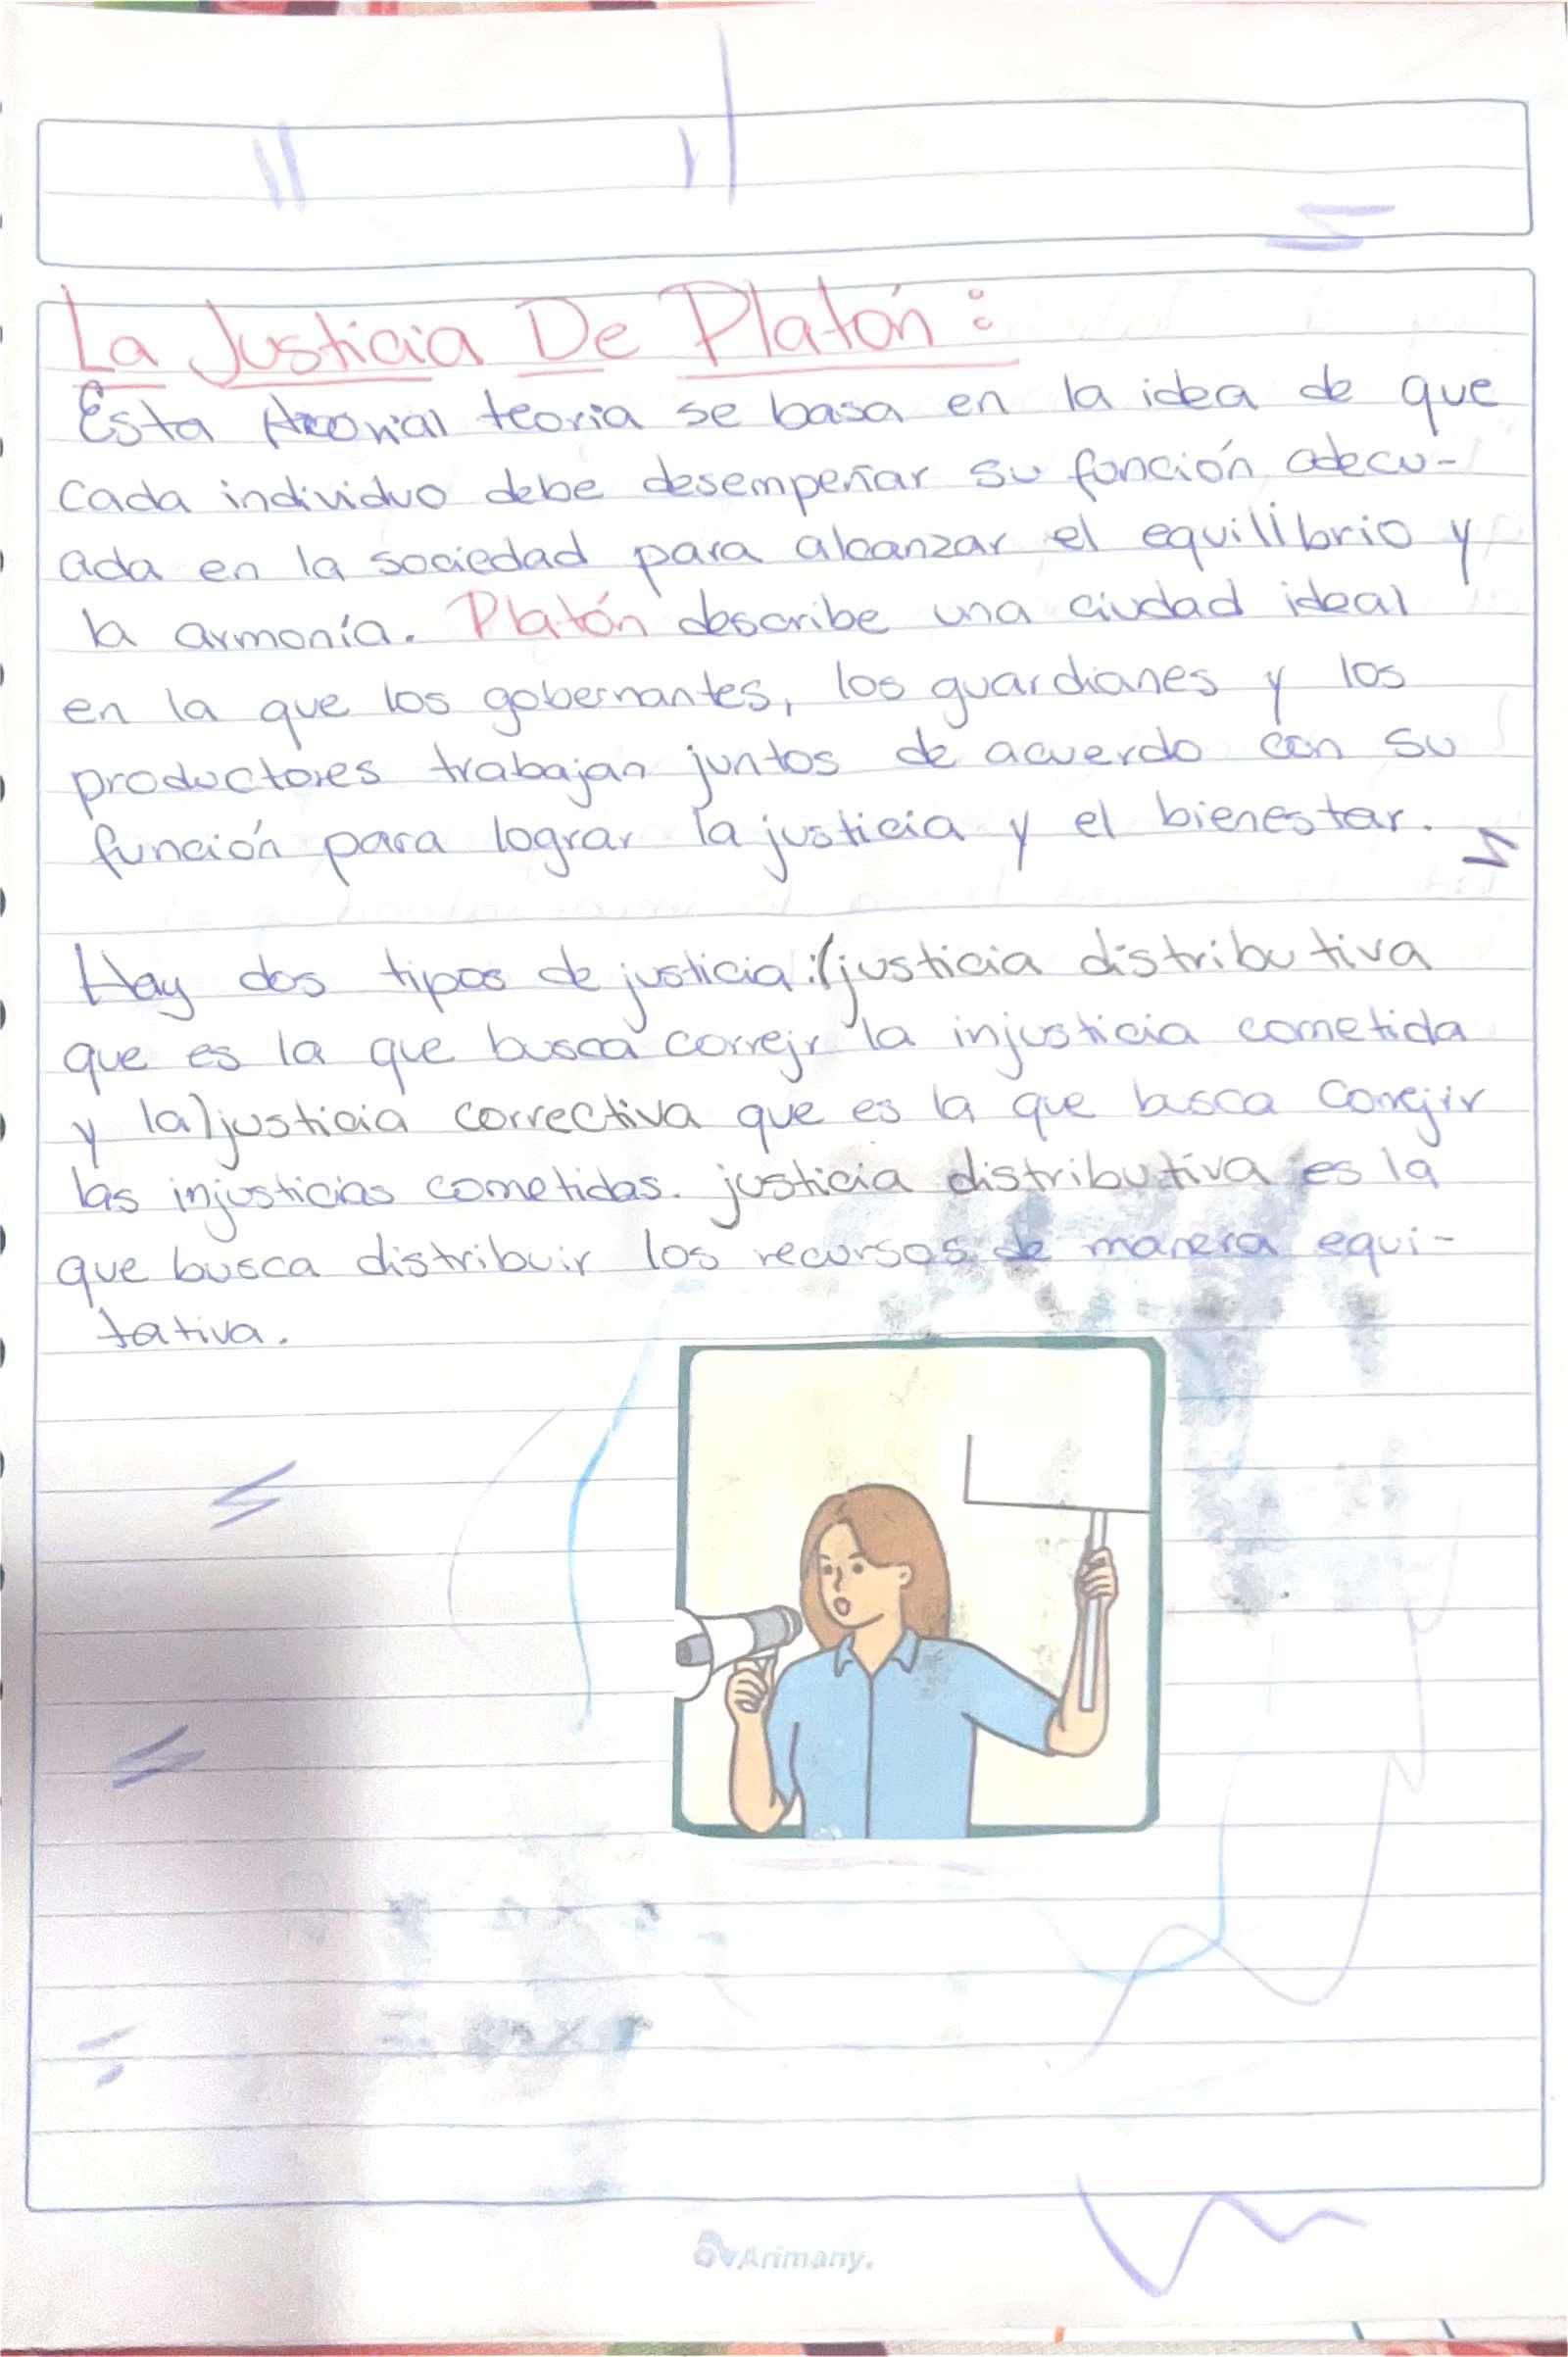 La Justicia De Platón:
Esta teoria se basa en la idea de que
cada individuo debe desempeñar su función adecu-
ada en la sociedad para alcanzar el equilibrio y
la armonía. Platón describe una ciudad ideal
en la que los gobernantes, los guardianes y los
productores trabajan juntos de acuerdo con su
función para lograr la justicia y el bienestar.
Hay dos tipos de justicia:(justicia distributiva
que es la que busca correjr la injusticia cometida
y la)justicia correctiva que es la que busca correjir
las injusticias cometidas. justicia distributiva es la
que busca distribuir los recursos de manera equi-
tativa.
Arimany.